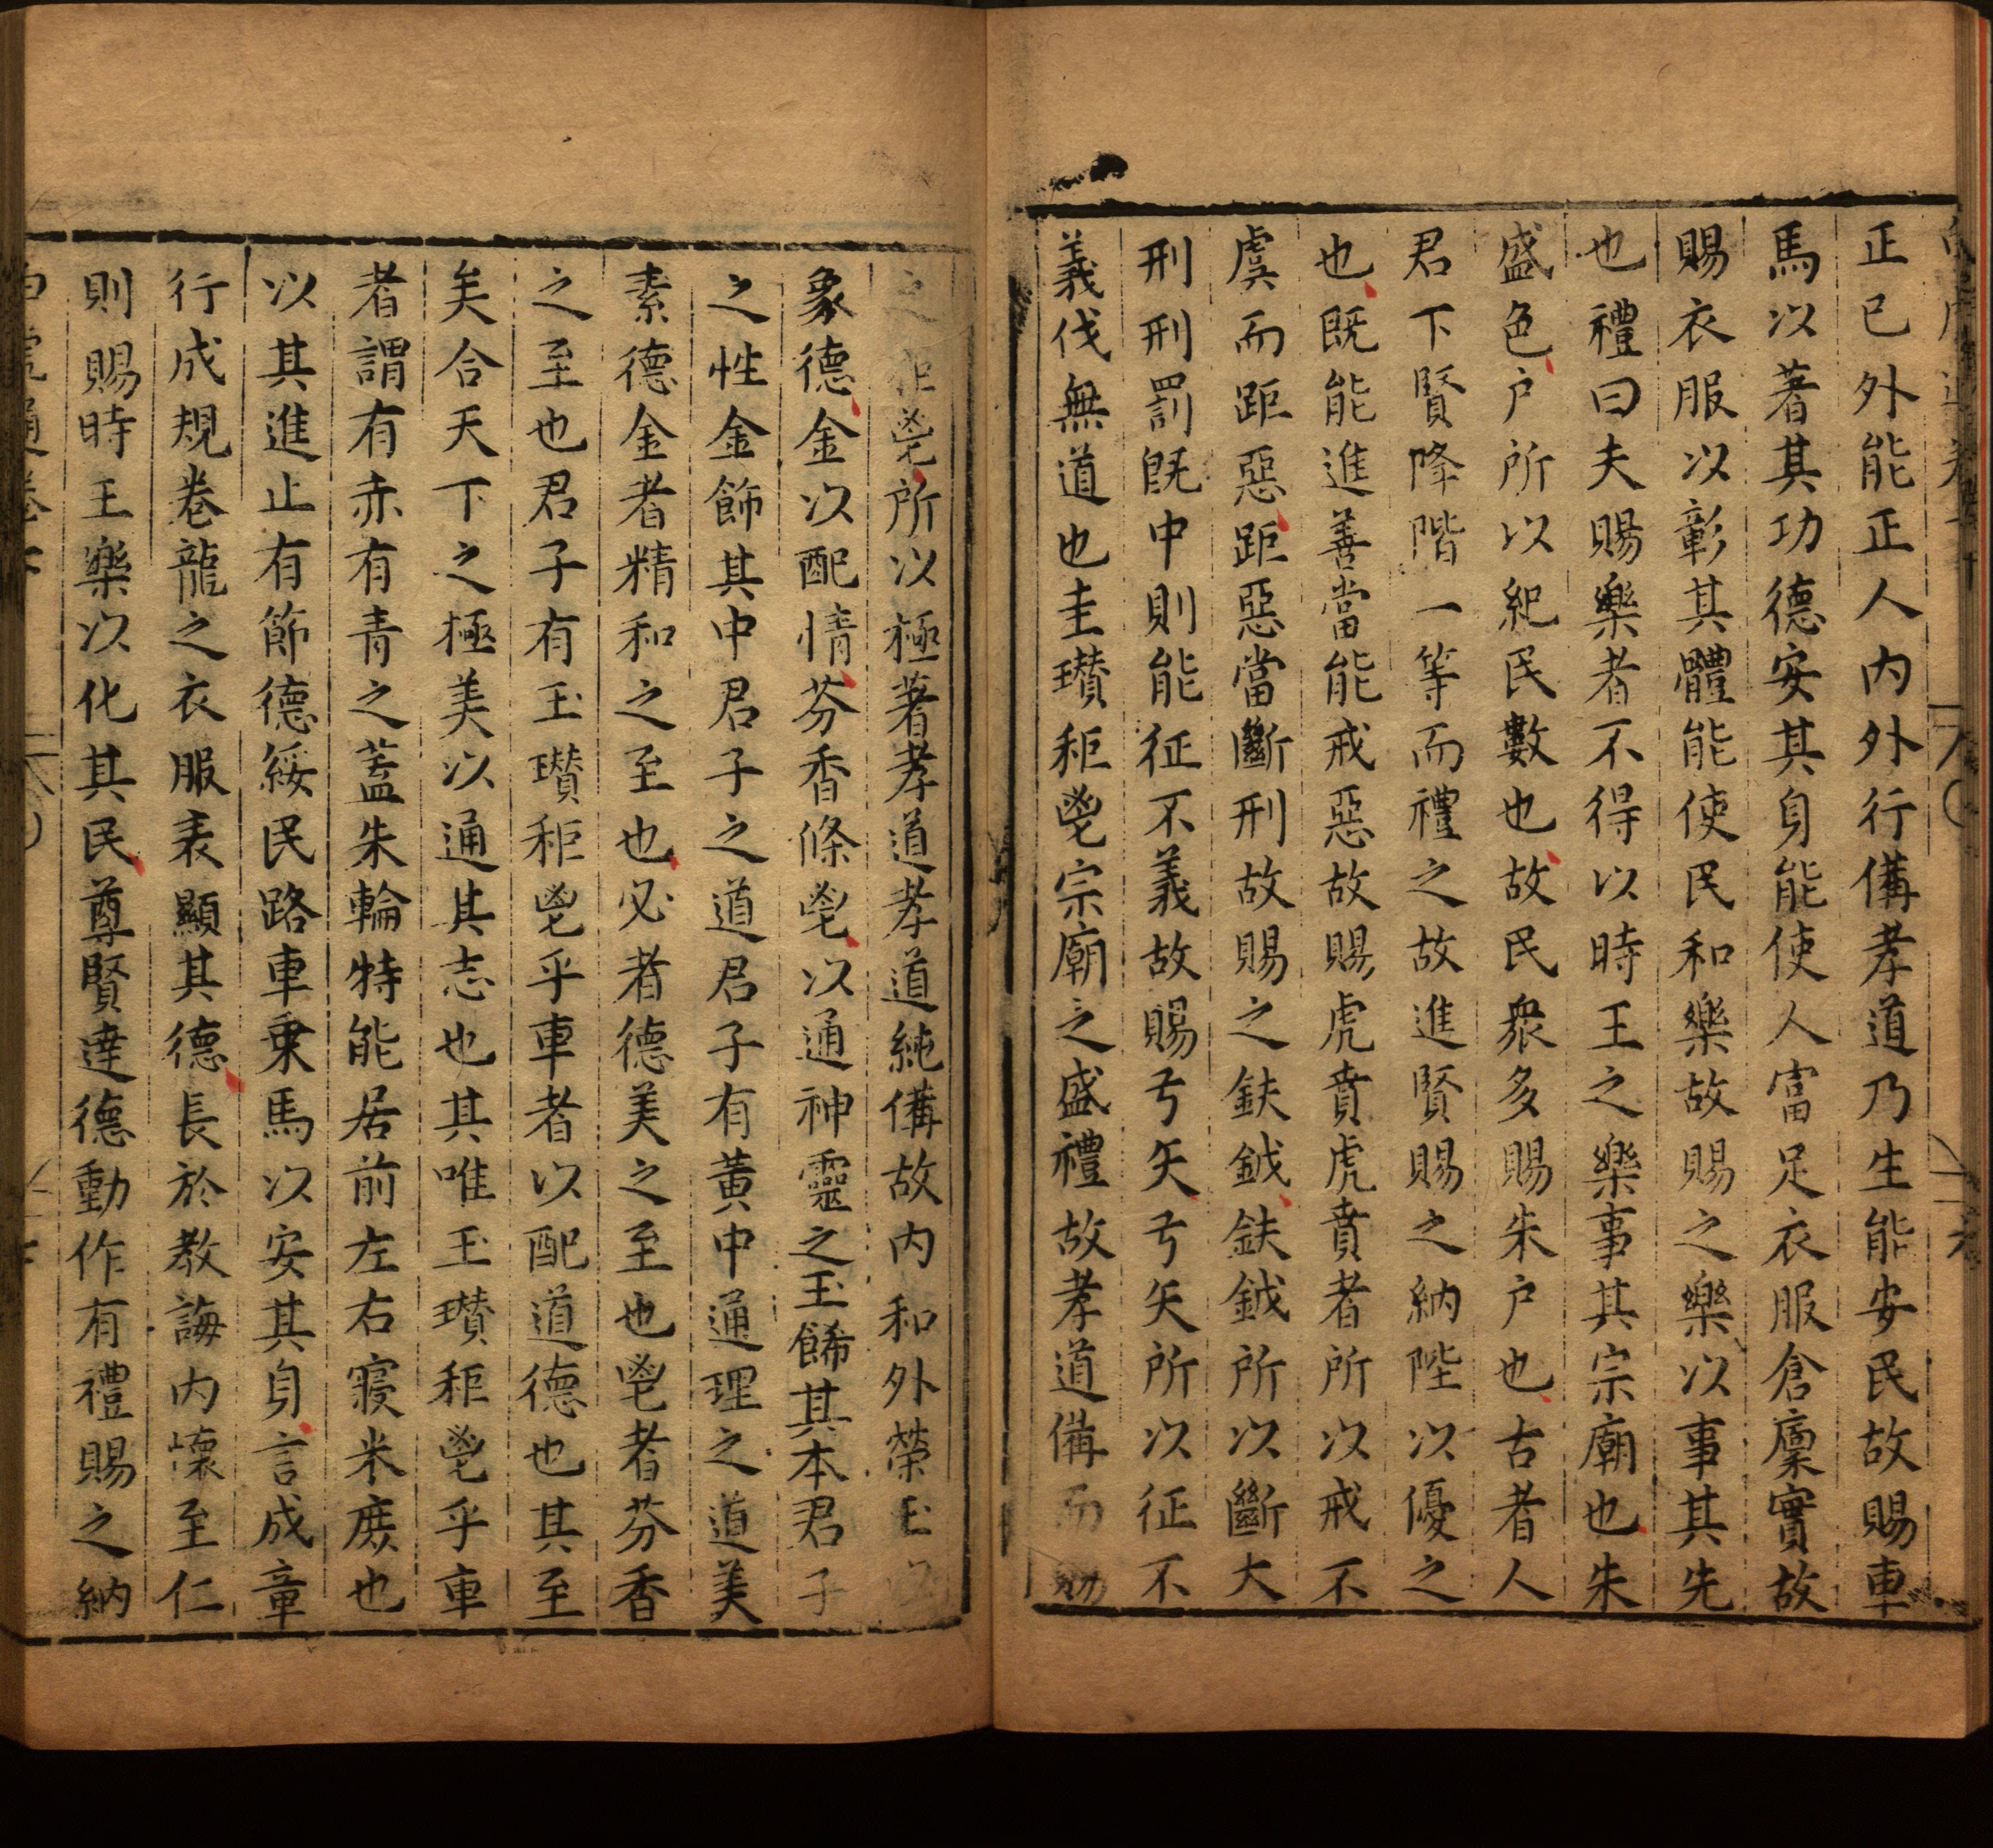 正已外能正人内外行備孝道乃生能安民故賜車
馬以著其功德安其身能使人富足衣服倉廩實故
賜衣服以彰其體能使民和樂故賜之樂以事其先
也禮曰夫賜樂者不得以時王之樂事其宗廟也朱
盛色户所以紀民數也故民衆多賜朱户也古者人
君下賢降階一等而禮之故進賢賜之納陛以優之
也既能進善當能戒惡故賜虎賁虎賁者所以戒不
虞而距惡距惡當斷刑故賜之鈇鉞鈇鉞所以斷大
刑刑罰旣中則能征不義故賜弓矢弓矢所以征不
義伐無道也圭瓚秬鬯宗廟之盛禮故孝道備而
之秬鬯所以極著孝道孝道純備故内和外榮玉以
象德金以配情芬香條鬯以通神靈之玉餙其本君子
之性金飾其中君子之道君子有黄中通理之道美
素德金者精和之至也必者德美之至也鬯者芬香
之至也君子有玉瓚秬鬯乎車者以配道德也其至
矣合天下之極美以通其志也其唯玉瓚秬鬯乎車
者謂有赤有青之蓋朱輪特能居前左右寢米廡也
以其進止有節德綏民路車乗馬以安其身言成章
行成規卷龍之衣服表顯其德長於教誨内懷至仁
則賜時王樂以化其民尊賢達德動作有禮賜之納
白虎通卷